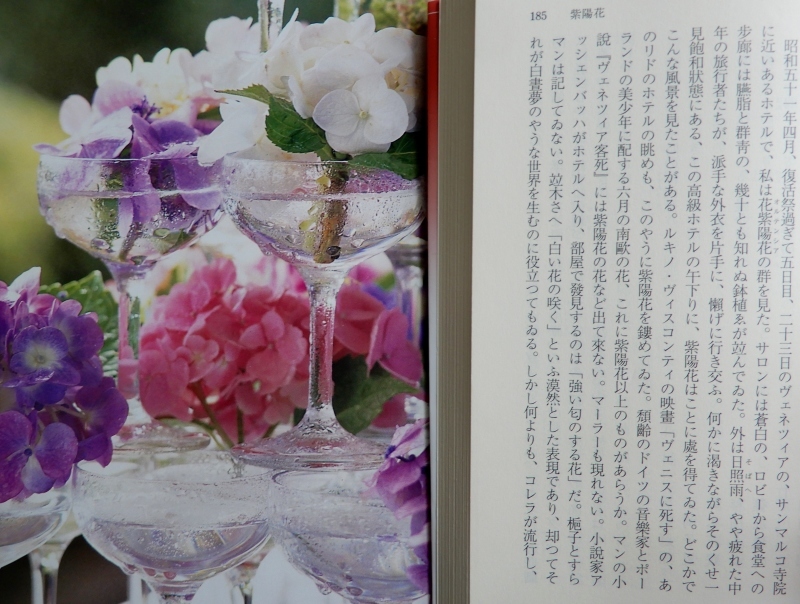 185　紫陽花
昭和五十一年四月、復活祭過ぎて五日目、二十三日のヴェネツィアの、サンマルコ寺院
に近いあるホテルで、私は花紫陽花の群を見た。サロンには蒼白の、ロビーから食堂への
オルタンシア
歩廊には臙脂と群青の、幾十とも知れぬ鉢植ゑが竝んでゐた。外は日照雨、やや疲れた中
そばへ
年の旅行者たちが、派手な外衣を片手に、懶げに行き交ふ。何かに渇きながらそのくせ一
見飽和狀態にある、この高級ホテルの午下りに、紫陽花はことに處を得てゐた。どこかで
こんな風景を見たことがある。ルキノ・ヴィスコンティの映畫「ヴェニスに死す」の、あ
のリドのホテルの眺めも、このやうに紫陽花を鏤めてゐた。頽齡のドイツの音樂家とポー
ランドの美少年に配する六月の南歐の花、これに紫陽花以上のものがあらうか。マンの小
說『ヴェネツィア客死』には紫陽花の花など出て來ない。マーラーも現れない。小說家ア
ッシェンバッハがホテルへ入り、部屋で發見するのは「强い匂のする花」だ。梔子とすら
マンは記してゐない。竝木さへ「白い花の咲く」といふ漠然とした表現であり、却つてそ
れが白晝夢のやうな世界を生むのに役立つてもゐる。しかし何よりも、コレラが流行し、